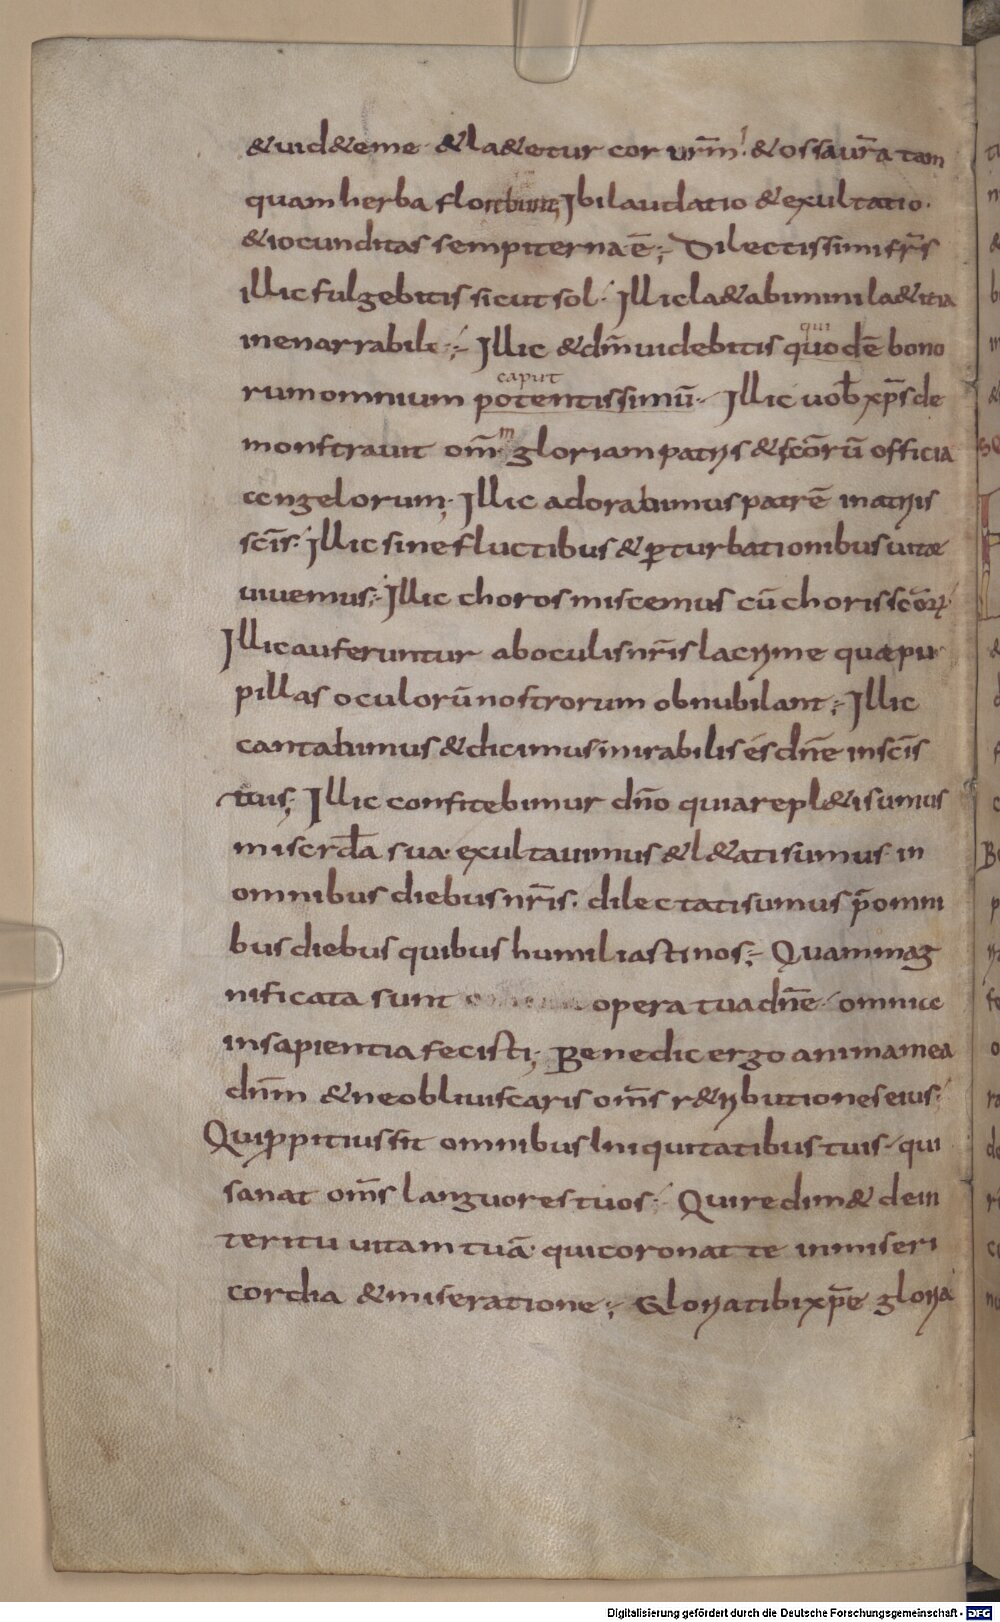 &uid&eme · &la&etur cor ur̄m! & ossaur̄a tam
quam herba florebunt; Ibi laudatio & exultatio ·
& iocunditas sempiterna ē;- Dilectissimi fr̄s
illic fulgebitis sicut sol · Illic la&abimini la&itia
inenarrabile;- Illic & dm̄ uidebitis quo dē bono
qui
rum omnium potentissimū · Illic uob̄ xp̄s de
caput
monstrauit om̄ gloriam patris & scōrū officia
m
angelorum; Illic adorabimus patrē in atriis
scīs · Illic sine fluctibus & ꝑturbationibus uitæ
uiuemus;- Illic choros miscemus cū choris scōꝝ
Illic auferuntur ab oculis nr̄is lacrime quæ pu
pillas oculorū nostrorum obnubilant;- Illic
cantabimus & dicimus mirabilis és dn̄e in scīs
tuis; Illic confitebimur dn̄o quia repl&i sumus
misercd̄a sua · exultauimus & l&ati sumus in
omnibus diebus nr̄is · dilectati sumus p̄ omni
bus diebus quibus humiliasti nos;- Quam mag
nificata sunt opera tua dn̄e · omnia
in sapientia fecisti; Benedic ergo anima mea
dn̄m & ne obliuiscaris om̄s r&ributiones eius ·
Qui ꝓpitius fit omnibus Iniquitatibus tuis · qui
sanat om̄s languores tuos · Qui redim& de in
teritu uitam tuā · qui coronat te in miseri
cordia & miseratione;- Gloria tibi xp̄e gloria
Digitalisierung gefördert durch die Deutsche Forschungsgemeinschaft - DFG